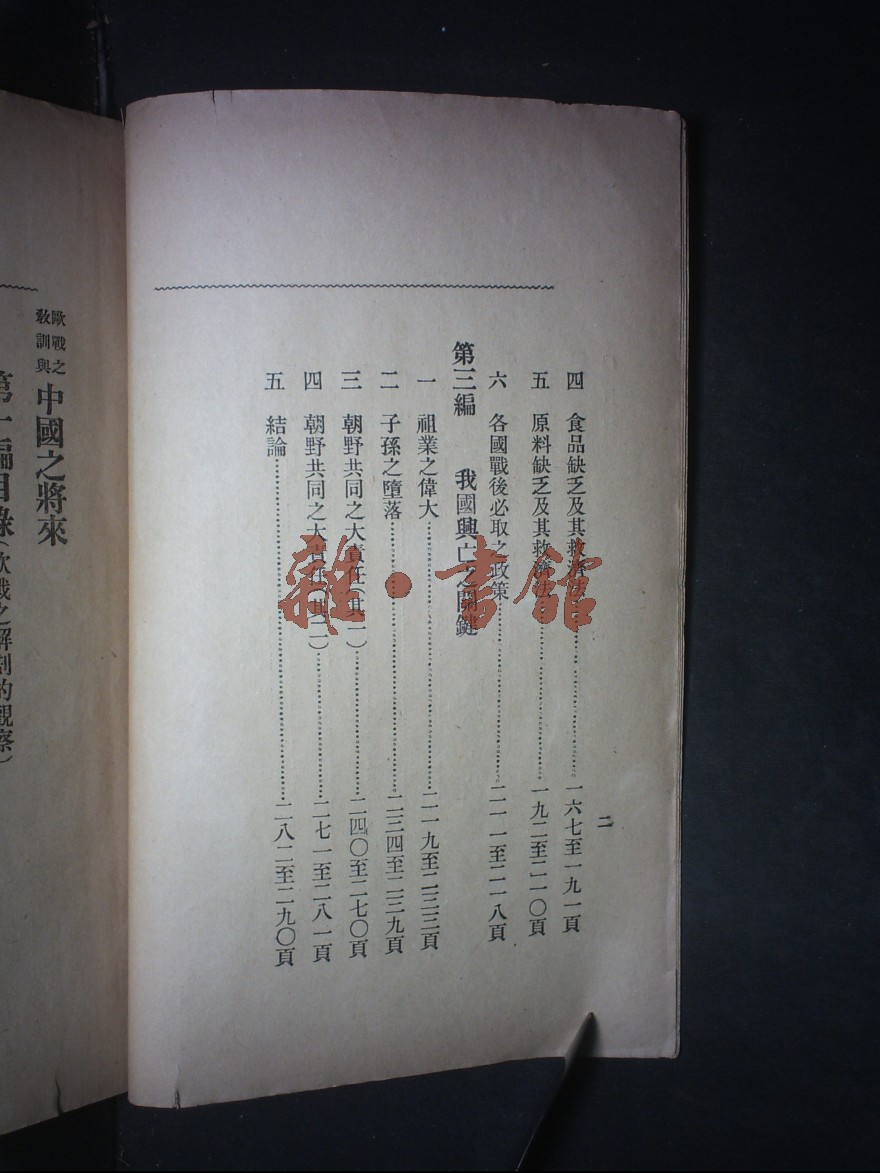 二
四 食品缺乏及其救濟法……一六七至一九一頁
五 原料缺乏及其救濟法……一九二至二一〇頁
六 各國戰後必取之政策……二一一至二一八頁
第三編 我國興亡之關鍵
一 祖業之偉大……二一九至二三三頁
二 子孫之墮落……二三四至二三九頁
三 朝野共同之大責任(其一)……二四〇至二七〇頁
四 朝野共同之大責任(其二)……二七一至二八一頁
五 結論……二八二至二九〇頁
歐戰之
教訓與
中國之將來
第一編目錄(歐戰之解剖的觀察)
雜·書館